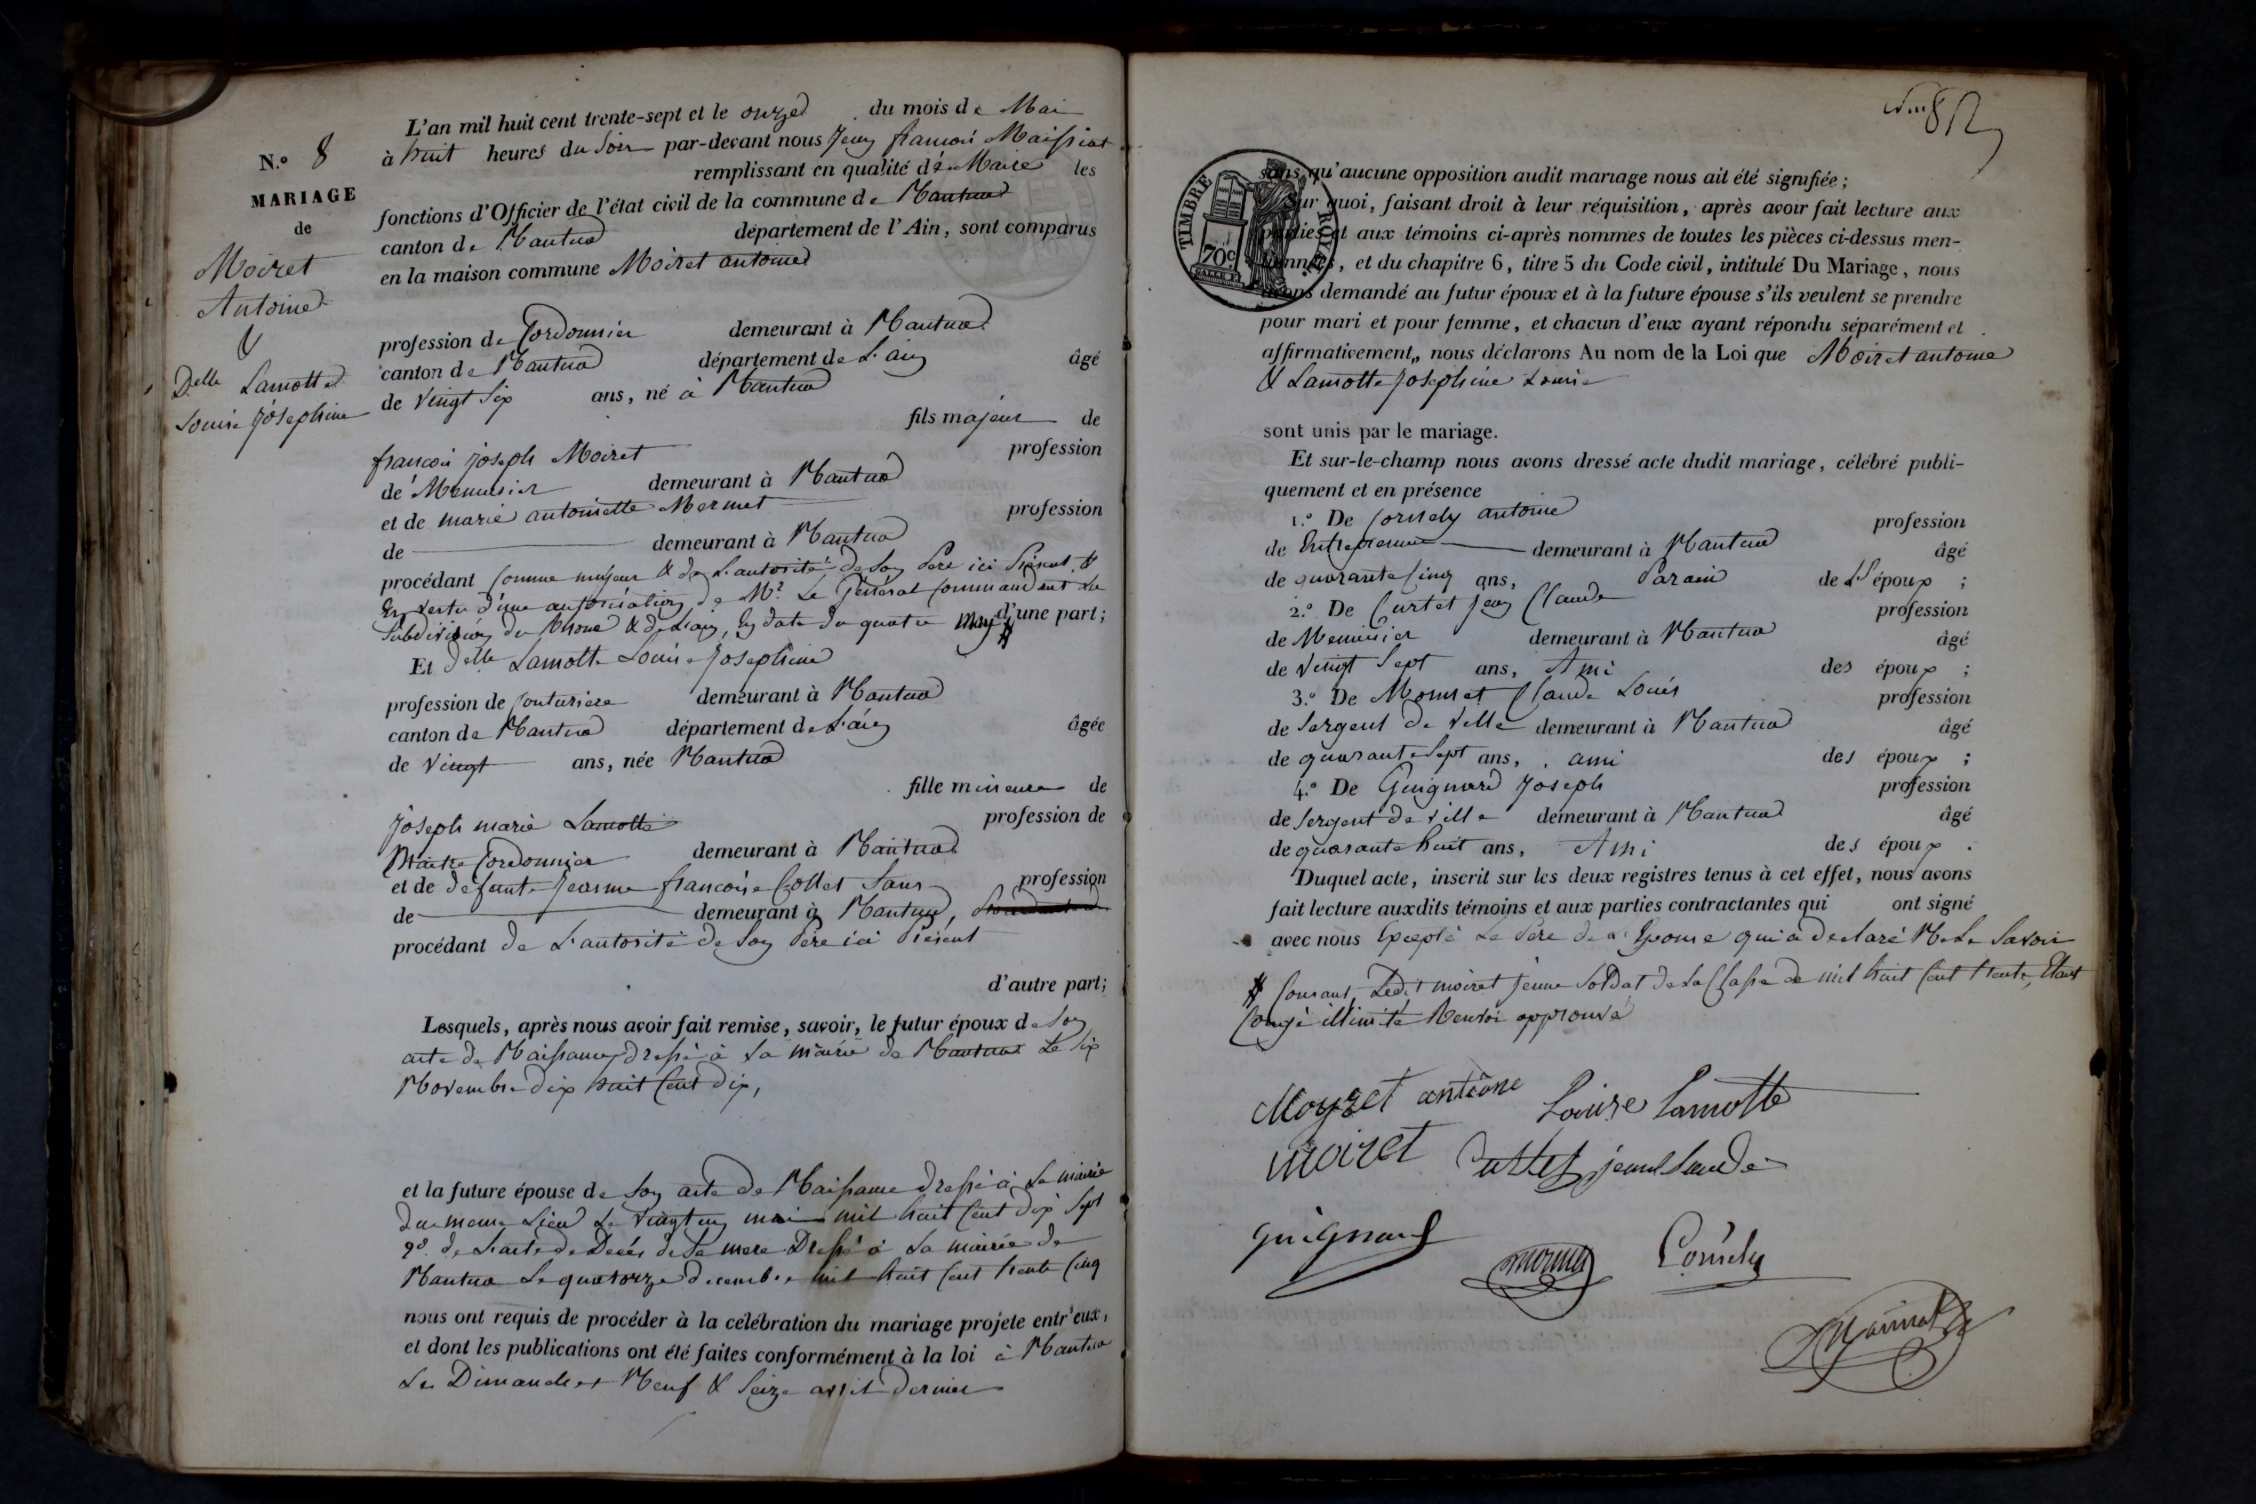 N.° 8
MARIAGE
de
Moiret
Antoine
&
Delle Lamotte
Louise Joséphine
L'an mil huit cent trente-sept et le onze du mois de Mai
à huit heures du Soir par-devant nous Jean françois Maissiat
remplissant en qualité de Maire les
fonctions d'Officier de l'état civil de la commune de Nantua
canton de Nantua département de l'Ain, sont comparus
en la maison commune Moiret antoine
profession de Cordonnier demeurant à Nantua
canton de Nantua département de L'ain âgé
de vingt Six ans, né à Nantua
fils majeur de
françois joseph Moiret profession
de Menuisier demeurant à Nantua
et de marie antoinette Mermet profession
de demeurant à Nantua
procédant Comme majeur & de L'autorité de Son Père ici Présent &
En vertu d'une autorisation de Mr. Le Général Commandant La
Subdivision du Rhone & de L'ain, En date du quatre May # d'une part;
Et Delle Lamotte Louise Josephine
profession de Couturière demeurant à Nantua
canton de Nantua département de L'ain âgée
de Vingt ans, née Nantua
fille mineure de
Joseph marie Lamotte profession de
Maitre Cordonnier demeurant à Nantua
et de défunte Jeanne françoise Collet Sans profession
de demeurant à Nantua,
procédant de L'autorité de Son Père ici Présent
d'autre part;
Lesquels, après nous avoir fait remise, savoir, le futur époux de Son
acte de Naissance dressé à La mairie de Nantua Le Six
Novembre dix huit Cent dix,
et la future épouse de Son acte de Naissance dressé à La mairie
du meme Lieu Le Vingt un mai mil huit Cent dix Sept
2° de L'acte de Décès de Sa mere Dressé à La mairie de
Nantua Le quatorze décembre mil huit Cent trente Cinq
nous ont requis de procéder à la célébration du mariage projeté entr'eux,
et dont les publications ont été faites conformément à la loi à Nantua
Les Dimanches Neuf & Seize avril dernier
TIMBRE ROYAL
70c
sans qu'aucune opposition audit mariage nous ait été signifiée;
Sur quoi, faisant droit à leur réquisition, après avoir fait lecture aux
parties et aux témoins ci-après nommés de toutes les pièces ci-dessus men-
tionnées, et du chapitre 6, titre 5 du Code civil, intitulé Du Mariage, nous
avons demandé au futur époux et à la future épouse s'ils veulent se prendre
pour mari et pour femme, et chacun d'eux ayant répondu séparément et
affirmativement, nous déclarons Au nom de la Loi que Moiret antoine
& Lamotte Josephine Louise
sont unis par le mariage.
Et sur-le-champ nous avons dressé acte dudit mariage, célébré publi-
quement et en présence
1.° De Cornely antoine profession
de Entrepreneur demeurant à Nantua âgé
de quarante Cinq ans, Parain de L'époux ;
2.° De Curtet Jean Claude profession
de Menuisier demeurant à Nantua âgé
de Vingt Sept ans, Ami des époux ;
3.° De Mornet Claude Louis profession
de Sergent de Ville demeurant à Nantua âgé
de quarante Sept ans, ami des époux ;
4.° De Guignard Joseph profession
de Sergent de Ville demeurant à Nantua âgé
de quarante huit ans, Ami des époux .
Duquel acte, inscrit sur les deux registres tenus à cet effet, nous avons
fait lecture auxdits témoins et aux parties contractantes qui ont signé
avec nous Excepté Le Père de L'Epouse qui a déclaré Ne Le Savoir
# Courant, Ledit moiret jeune Soldat de La Classe de mil huit Cent trente, Etant
Congé illimité Renvoi approuvé
Moyret antoine
Louise Lamotte
moiret
Curtet jean Claude
guignard
mornet
Cornely
Maissiat